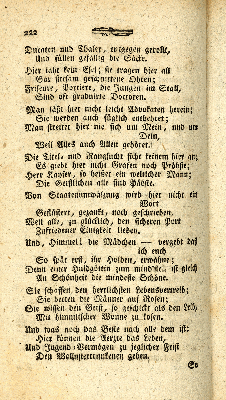 222
Ducaten und Thaler, entgegen gerollt,
Und füllen gefällig die Säcke.
Hier jahr kein Esel; sie tragen hier all
Gar seltsam gespannene Ohren;
Friseure, Portiere, die Jungen im Stall,
Sind oft graduirte Doctoren.
Man läßt hier nicht leicht Advokaten herein;
Sie werden auch füglich entbehret;
Man streitet hier nie sich um Mein, und um
Dein,
Weil Alles auch Allen gehöret.
Die Titel- und Rangsucht ficht keinen hier an;
Es giebt hier nicht Grafen noch Pröbste;
Herr Kayser, so heisset ein weltlicher Mann;
Die Geistlichen alle sind Päpste.
Von Staatenumwälzung wird hier nicht ein
Wort
Geflüstert, gezankt, noch geschrieben,
Weil alle, zu glücklich, den sicheren Port
Zufriedener Einigkeit lieben.
Und, Himmel! die Mädchen — vergebt daß
ich euch
So spät erst, ihr Holden, erwähne;
Denn einer Huldgöttin zum mindsten ist gleich
An Schönheit die mindeste Schöne.
Sie schaffen den herrlichsten Lebensverweil;
Sie betten die Männer auf Rosen;
Sie wissen den Geist, so geschickt als den Leib,
Mit himmlischer Wonne zu kosen.
Und was noch das Beste nach alle dem ist:
Hier können die Aerzte das Leben,
Und Jugend-Vermögen zu jeglicher Frist
Den Wollusttrunkenen geben.
So